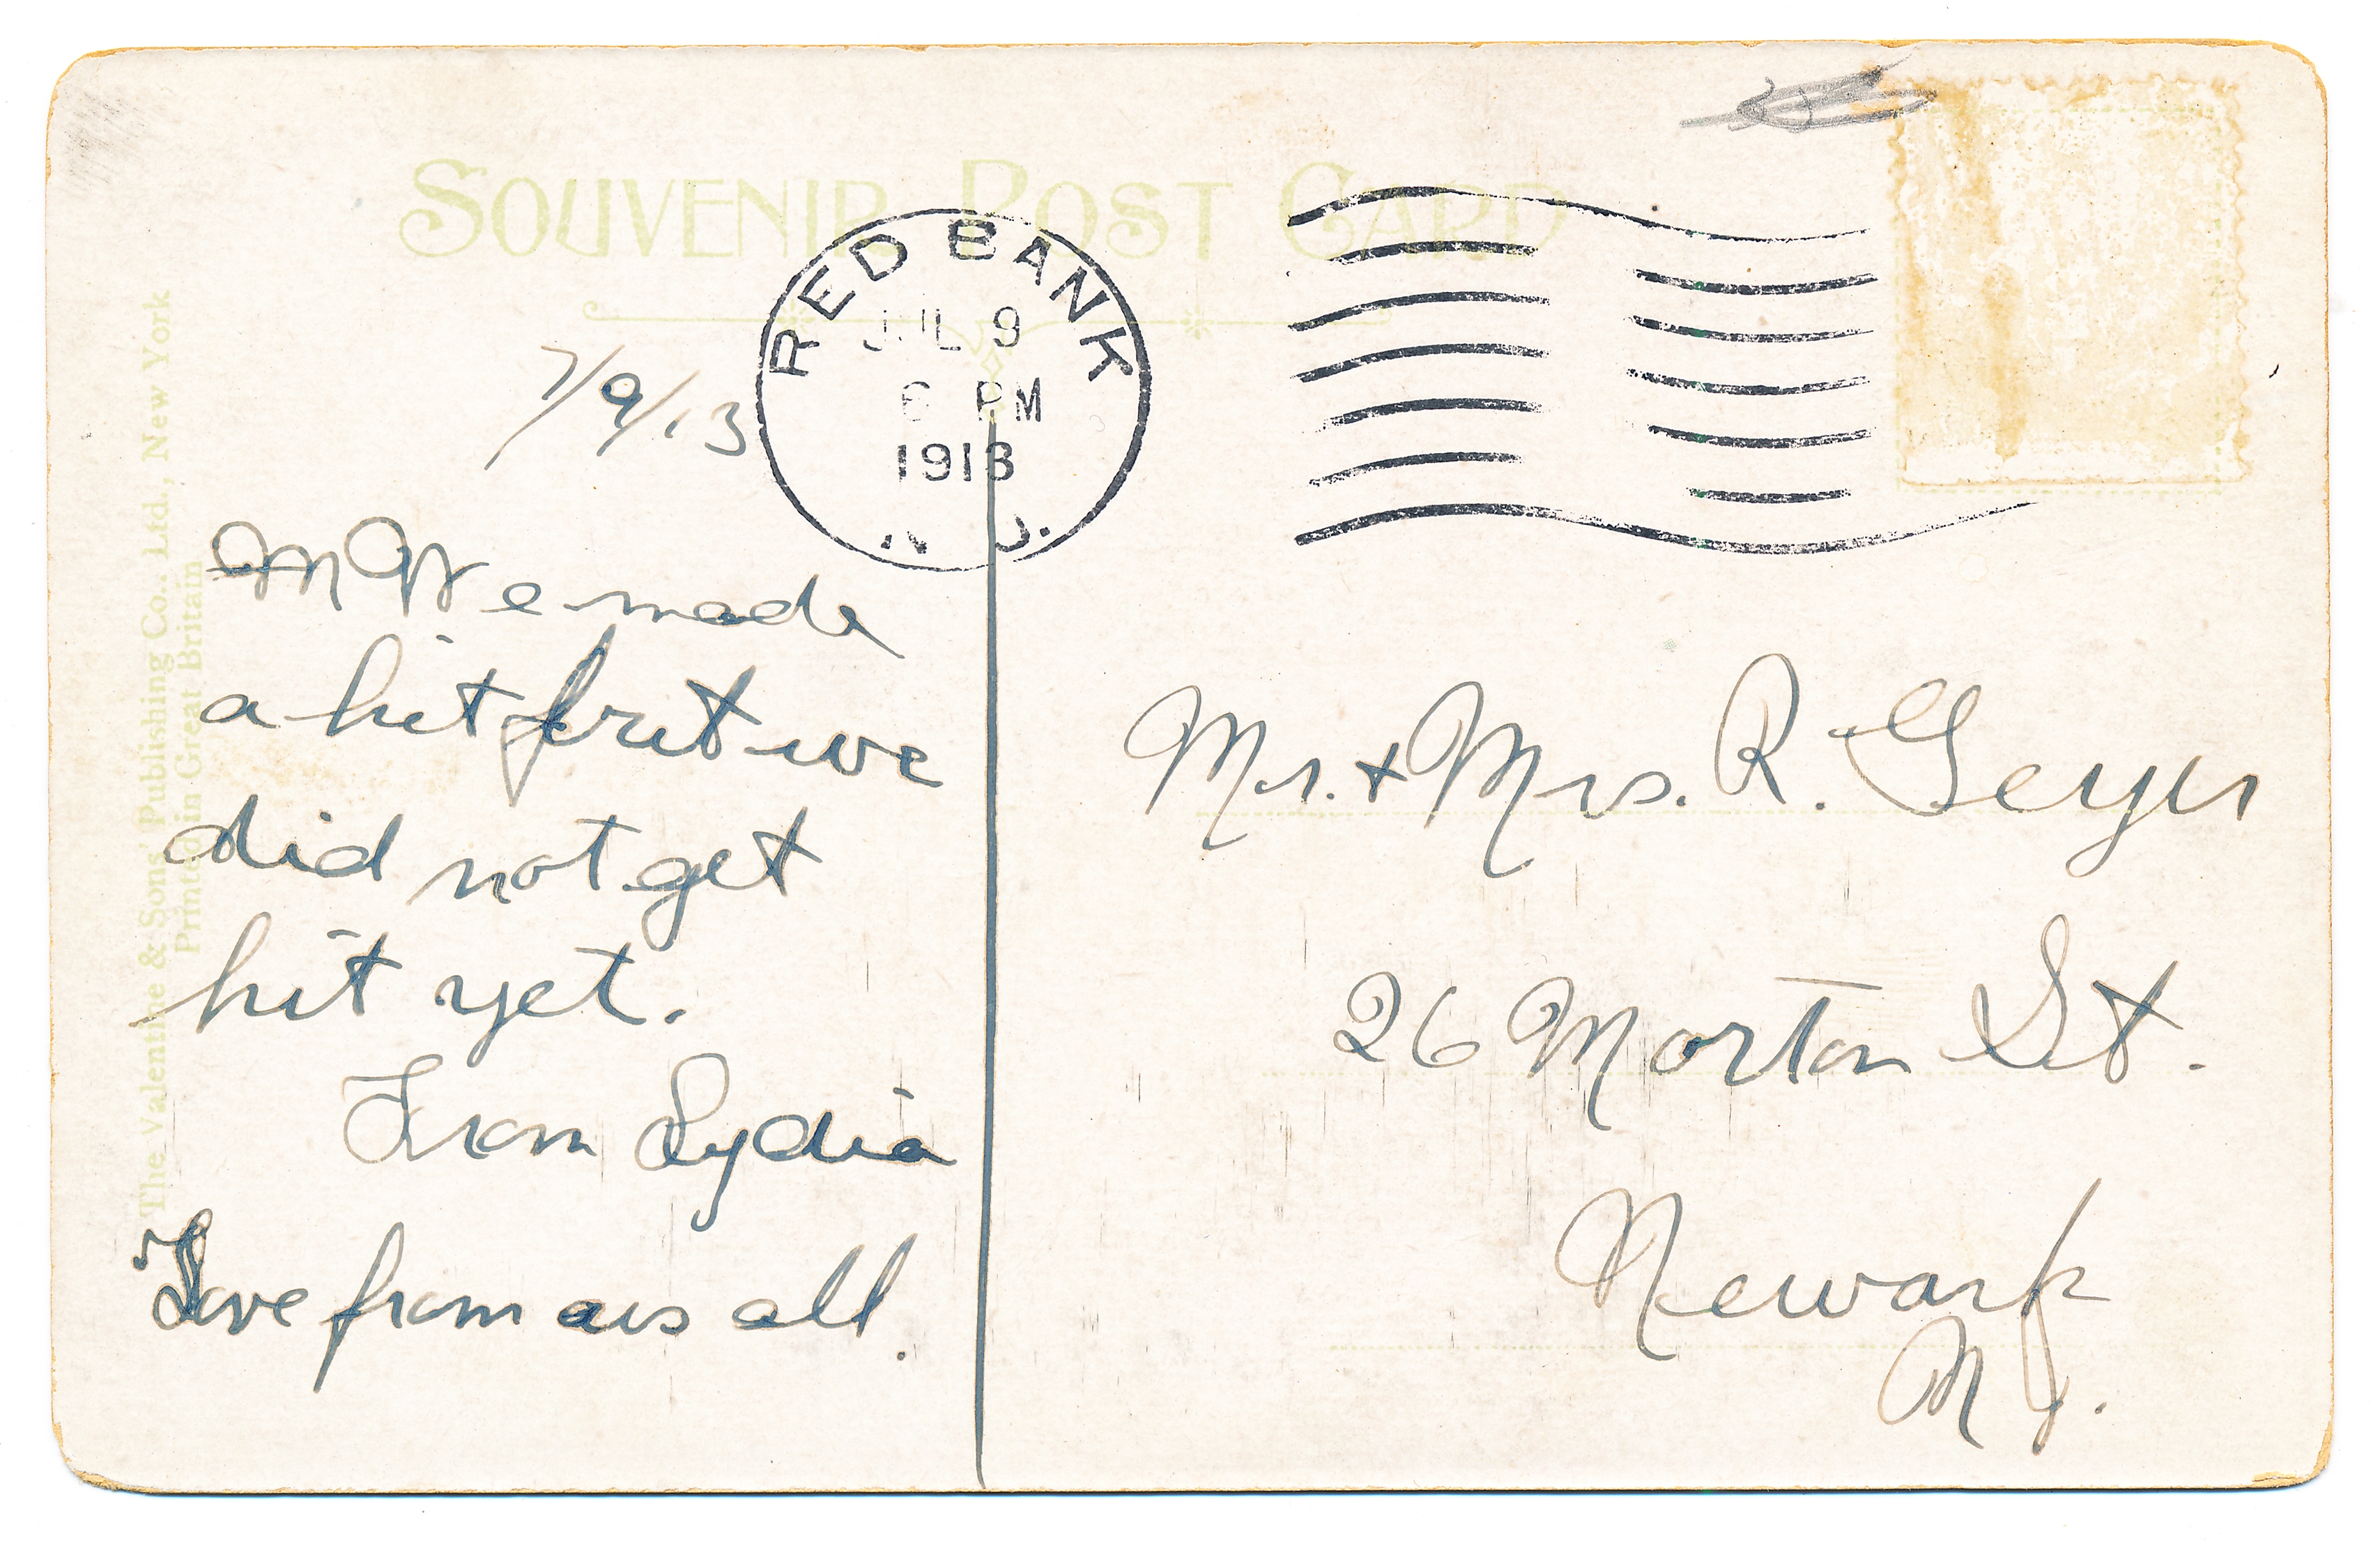 SOUVENIR POST CARD
RED BANK
JUL 9
6 PM
1913
N. J.
7/9/13
We made
a hit but we
did not get
hit yet.
From Lydia
Love from us all.
Mr. + Mrs. R. Geyer
26 Morton St.
Newark
N J.
The Valentine & Sons' Publishing Co., Ltd., New York
Printed in Great Britain